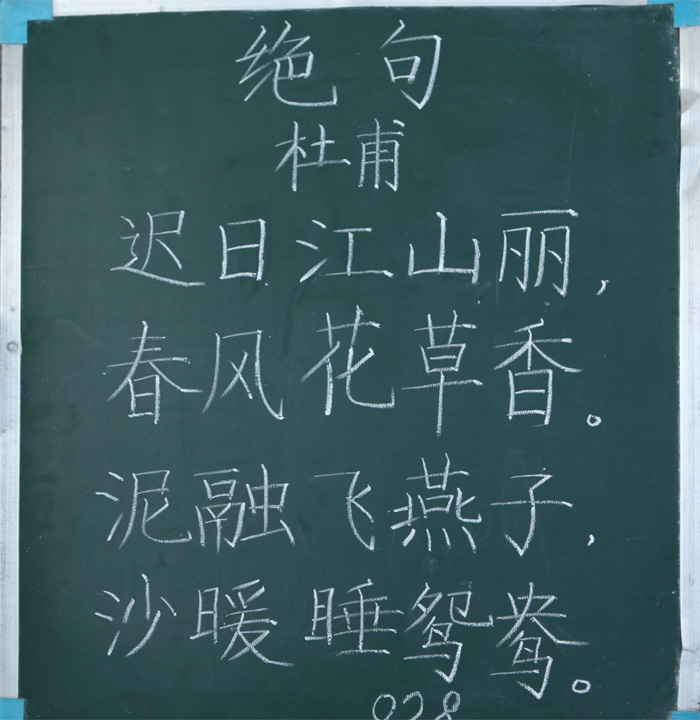 绝句
杜甫
迟日江山丽,
春风花草香。
泥融飞燕子,
沙暖睡鸳鸯。
028